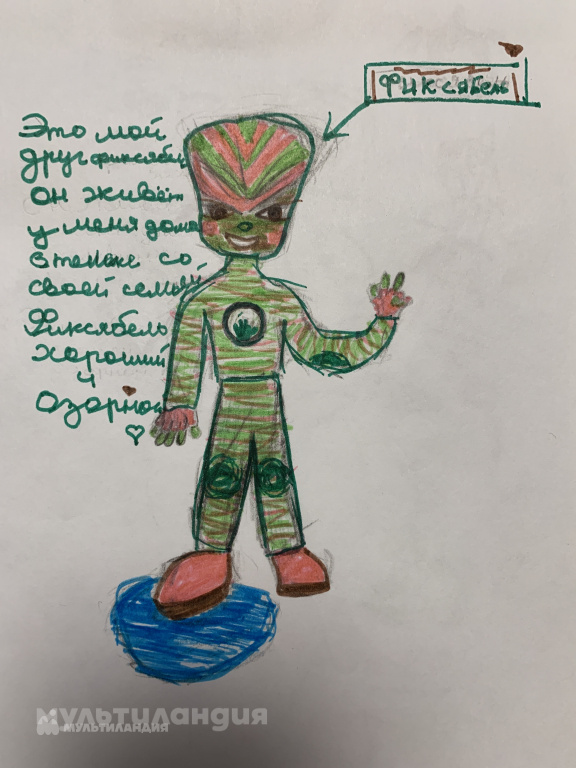 Фиксабель
Это мой
друг фиксябель
он живёт
у меня дома
в телеке со
своей семьёй
Фиксябель
хороший
и
озорной
мультиландия
мультиландия